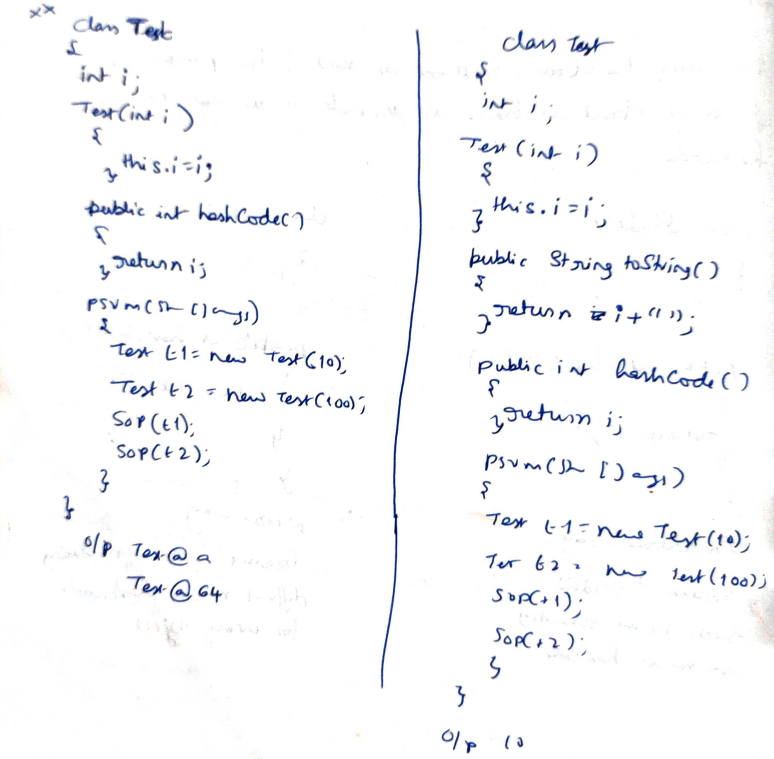 xx
class Test
{
int i;
Test(int i)
{
this.i=i;
}
public int hashCode()
{
return i;
}
psvm(St []args)
{
Test t1= new Test(10);
Test t2 = new Test(100);
Sop(t1);
Sop(t2);
}
}
o/p Test@a
Test@64
class Test
{
int i;
Test(int i)
{
this.i=i;
}
public String toString()
{
return i+" ";
}
public int hashCode()
{
return i;
}
psvm(St []args)
{
Test t1=new Test(10);
Tes t2 = new Test(100);
Sop(t1);
Sop(t2);
}
}
o/p 10